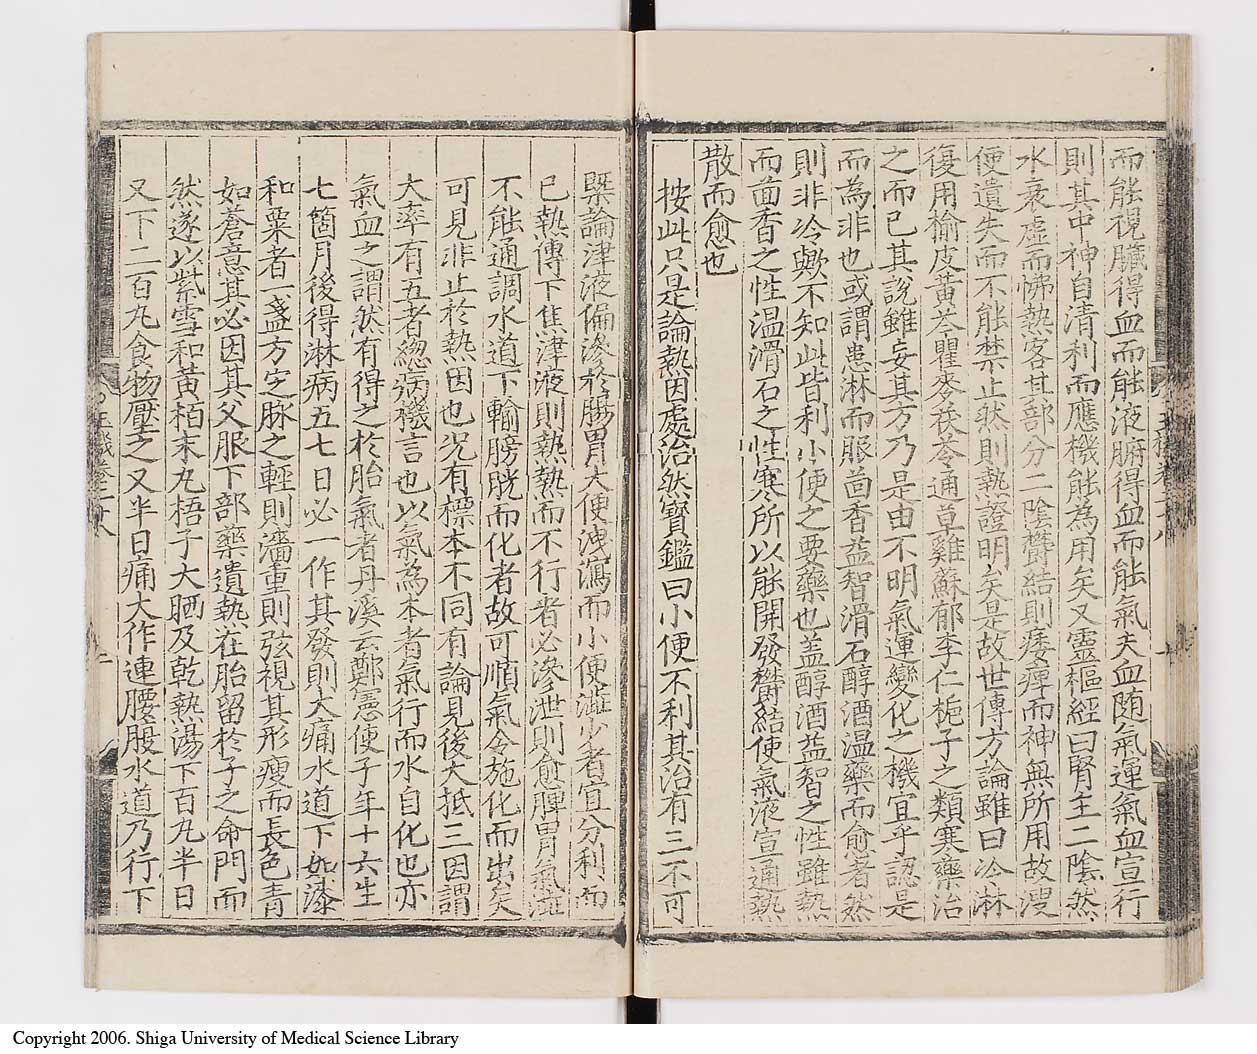 而能視臟得血而能液腑得血而能氣夫血随氣運氣血宣行
則其中神自清利而應機能為用矣又靈樞經曰腎主二陰然
水衰虚而怫熱客其部分二陰欝結則痿痺而神無所用故溲
便遺失而不能禁止然則熱證明矣是故世傳方論雖曰冷淋
復用榆皮黄芩瞿麥茯苓通草雞蘇郁李仁梔子之類寒藥治
之而已其說雖妄其方乃是由不明氣運變化之機宜乎認是
而為非也或謂患淋而服茴香益智滑石醇酒温藥而愈者然
則非冷歟不知此皆利小便之要藥也盖醇酒益智之性雖熱
而茴香之性温滑石之性寒所以能開發欝結使氣液宣通熱
散而愈也
按此只是論熱因處治然寶鑑曰小便不利其治有三不可
槩論津液偏滲於膓胃大便洩瀉而小便澁少者宜分利而
已熱傳下焦津液則熱熱而不行者必滲泄則愈脾胃氣澁
不能通調水道下輸膀胱而化者故可順氣令施化而出矣
可見非止於熱因也况有標本不同有論見後大抵三因謂
大率有五者緫病機言也以氣為本者氣行而水自化也亦
氣血之謂然有得之於胎氣者丹溪云鄭憲使子年十六生
七箇月後得淋病五七日必一作其發則大痛水道下如漆
和粟者一盞方定脉之輕則濇重則弦視其形瘦而長色青
如蒼意其必因其父服下部藥遺熱在胎留於子之命門而
然遂以紫雪和黄栢末丸梧子大晒及乾熱湯下百丸半日
又下二百丸食物壓之又半日痛大作連腰股水道乃行下